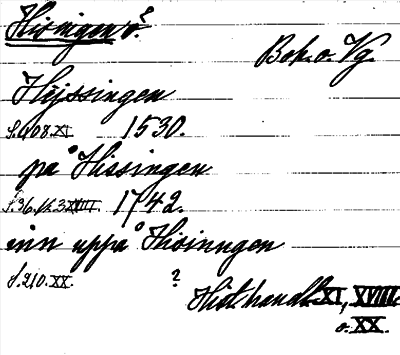 Hisingen ö.
Boh. o. Vg.
Hijssingen
s. 108. XI 1530.
på Hissingen
s. 36. h. 3 XVIII 1742.
inn uppå Hisinngen
s. 210. XX. ?
Hist. handl. XI, XVIII.
o. XX.